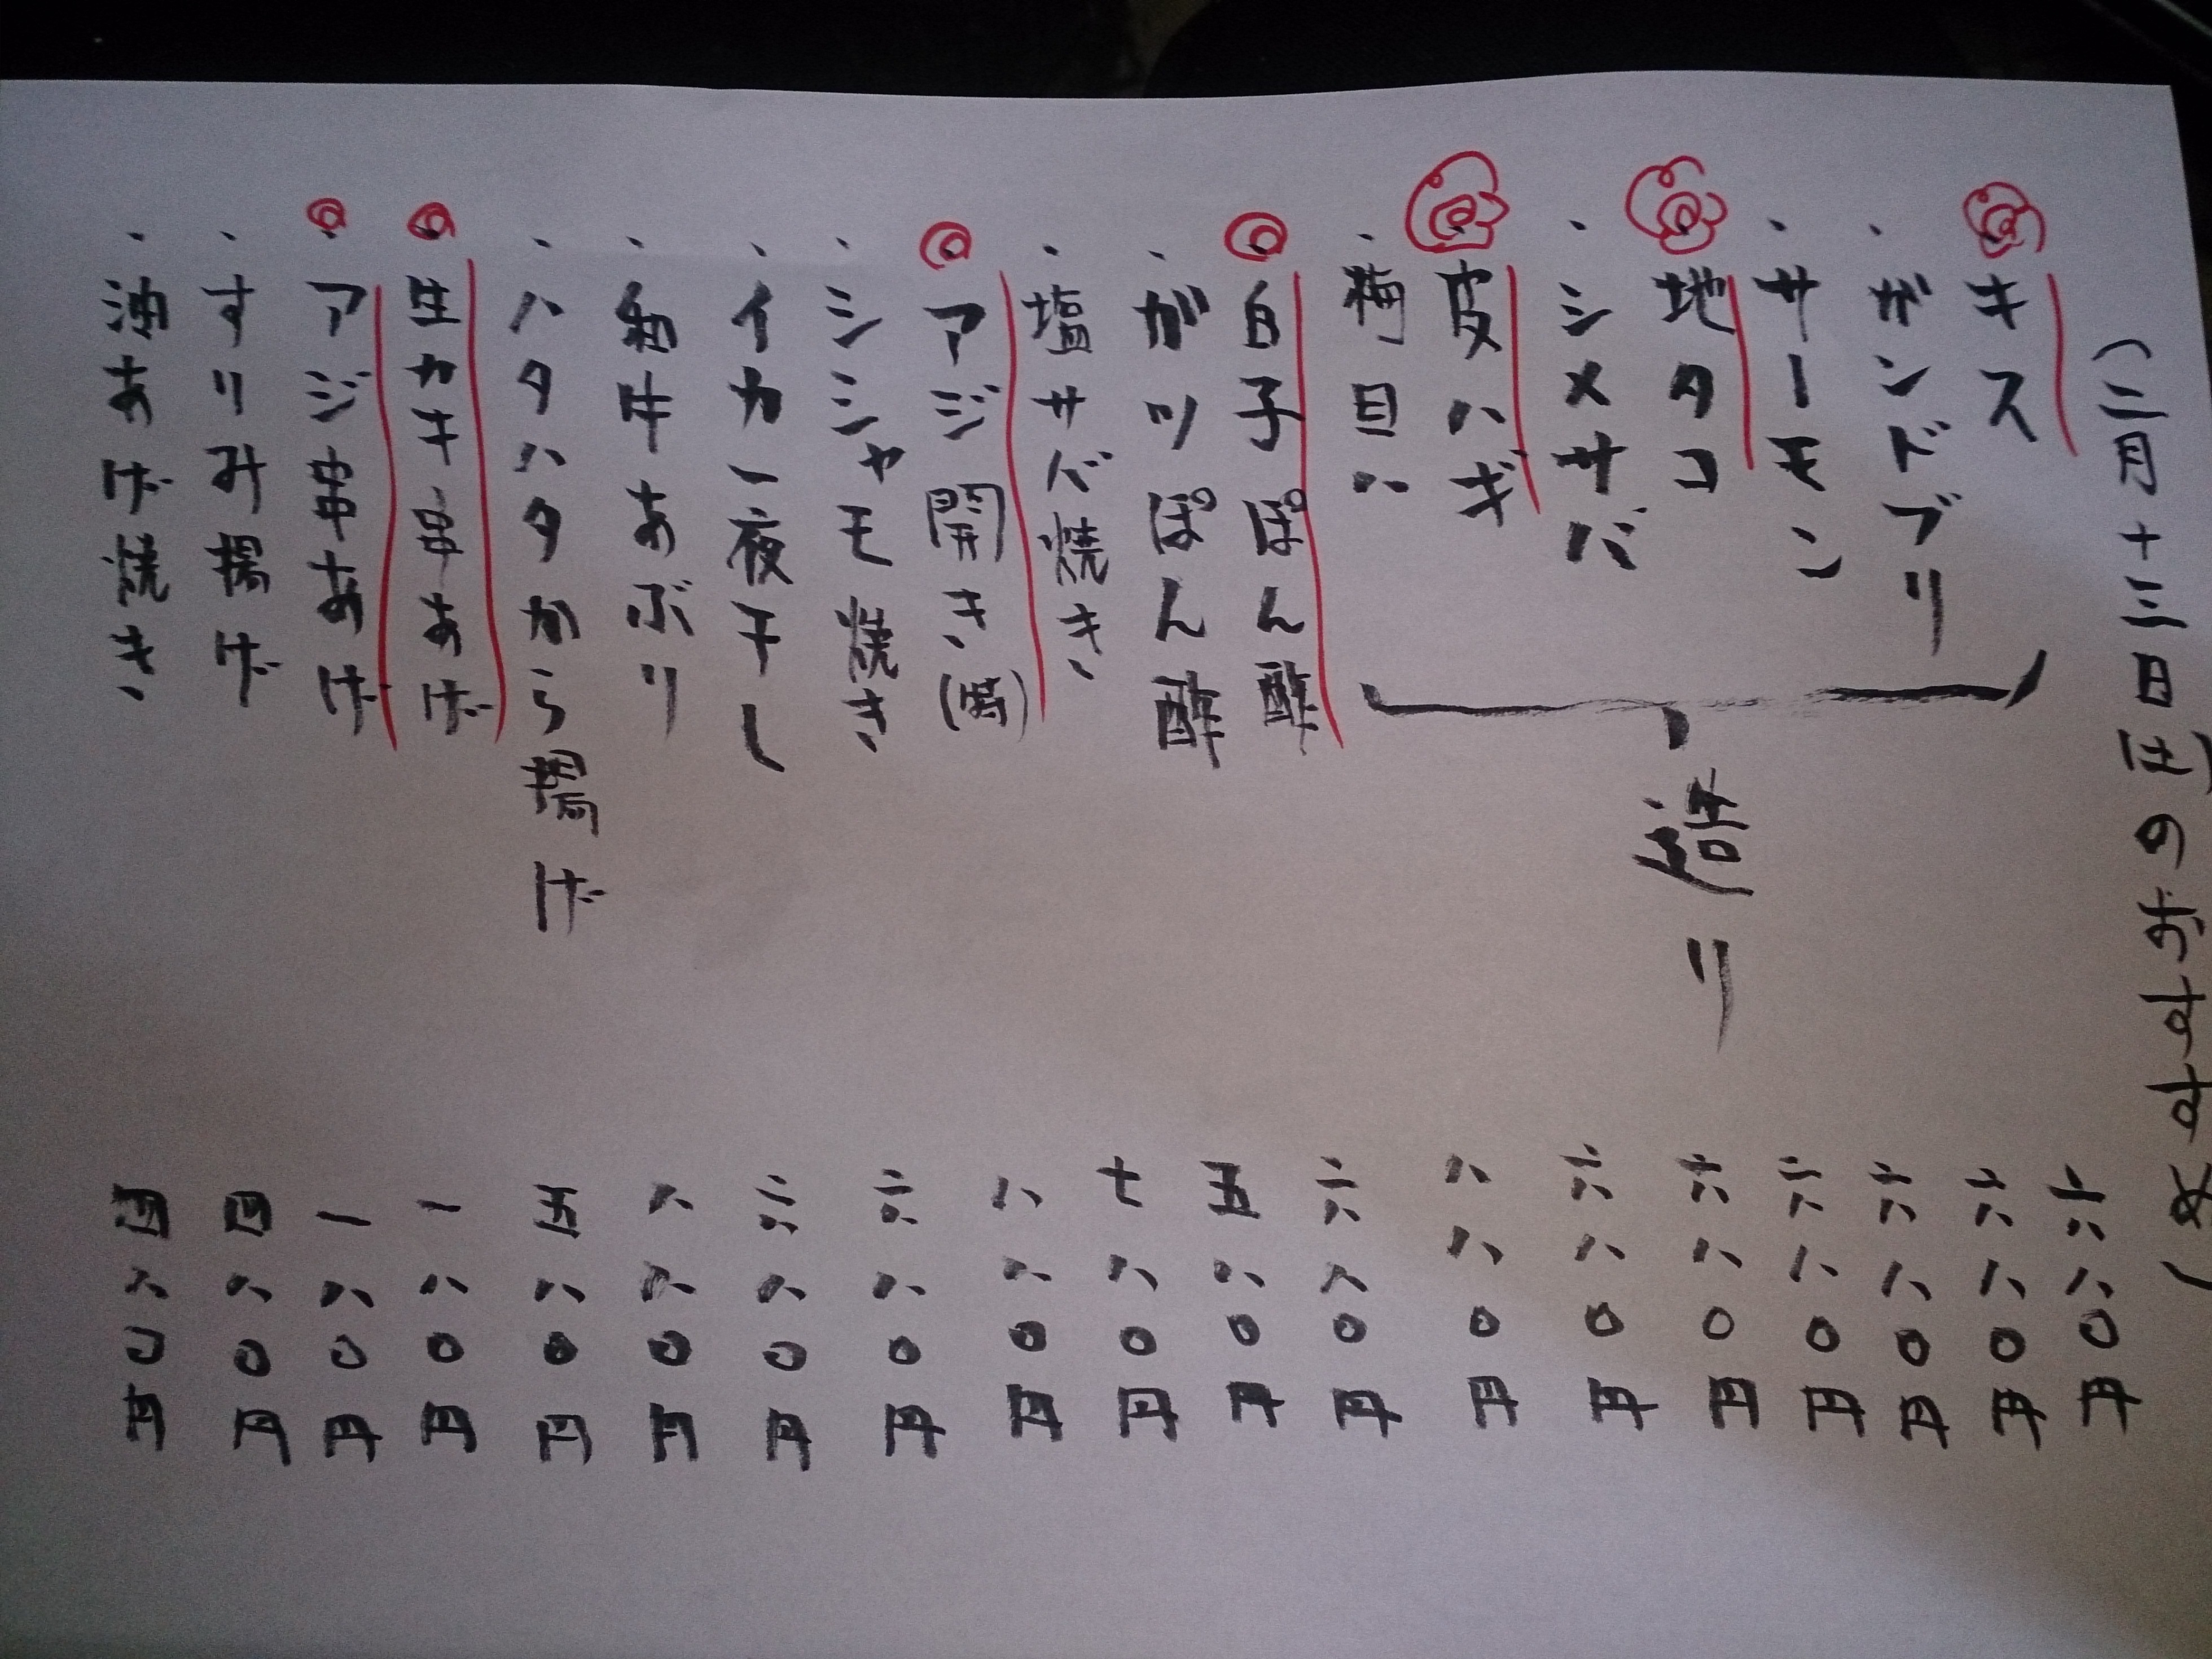 (二月十三日(土)のおすすめ)
・キス 六八〇円
・ガンドブリ 六八〇円
・サーモン 六八〇円
・地タコ 六八〇円
・シメサバ 六八〇円
・皮ハギ 六八〇円
・梅貝 八八〇円
造り
・白子ぽん酢 六八〇円
・がツぽん酢 五八〇円
・塩サバ焼き 七八〇円
・アジ開き 八八〇円
・シシャモ焼き 六八〇円
・イカ一夜干し 六八〇円
・和牛あぶり 八八〇円
・ハタハタから揚げ 五八〇円
・生カキ串あげ 一八〇円
・アジ串あげ 一八〇円
・すりみ揚げ 四八〇円
・油あげ焼き 四八〇円